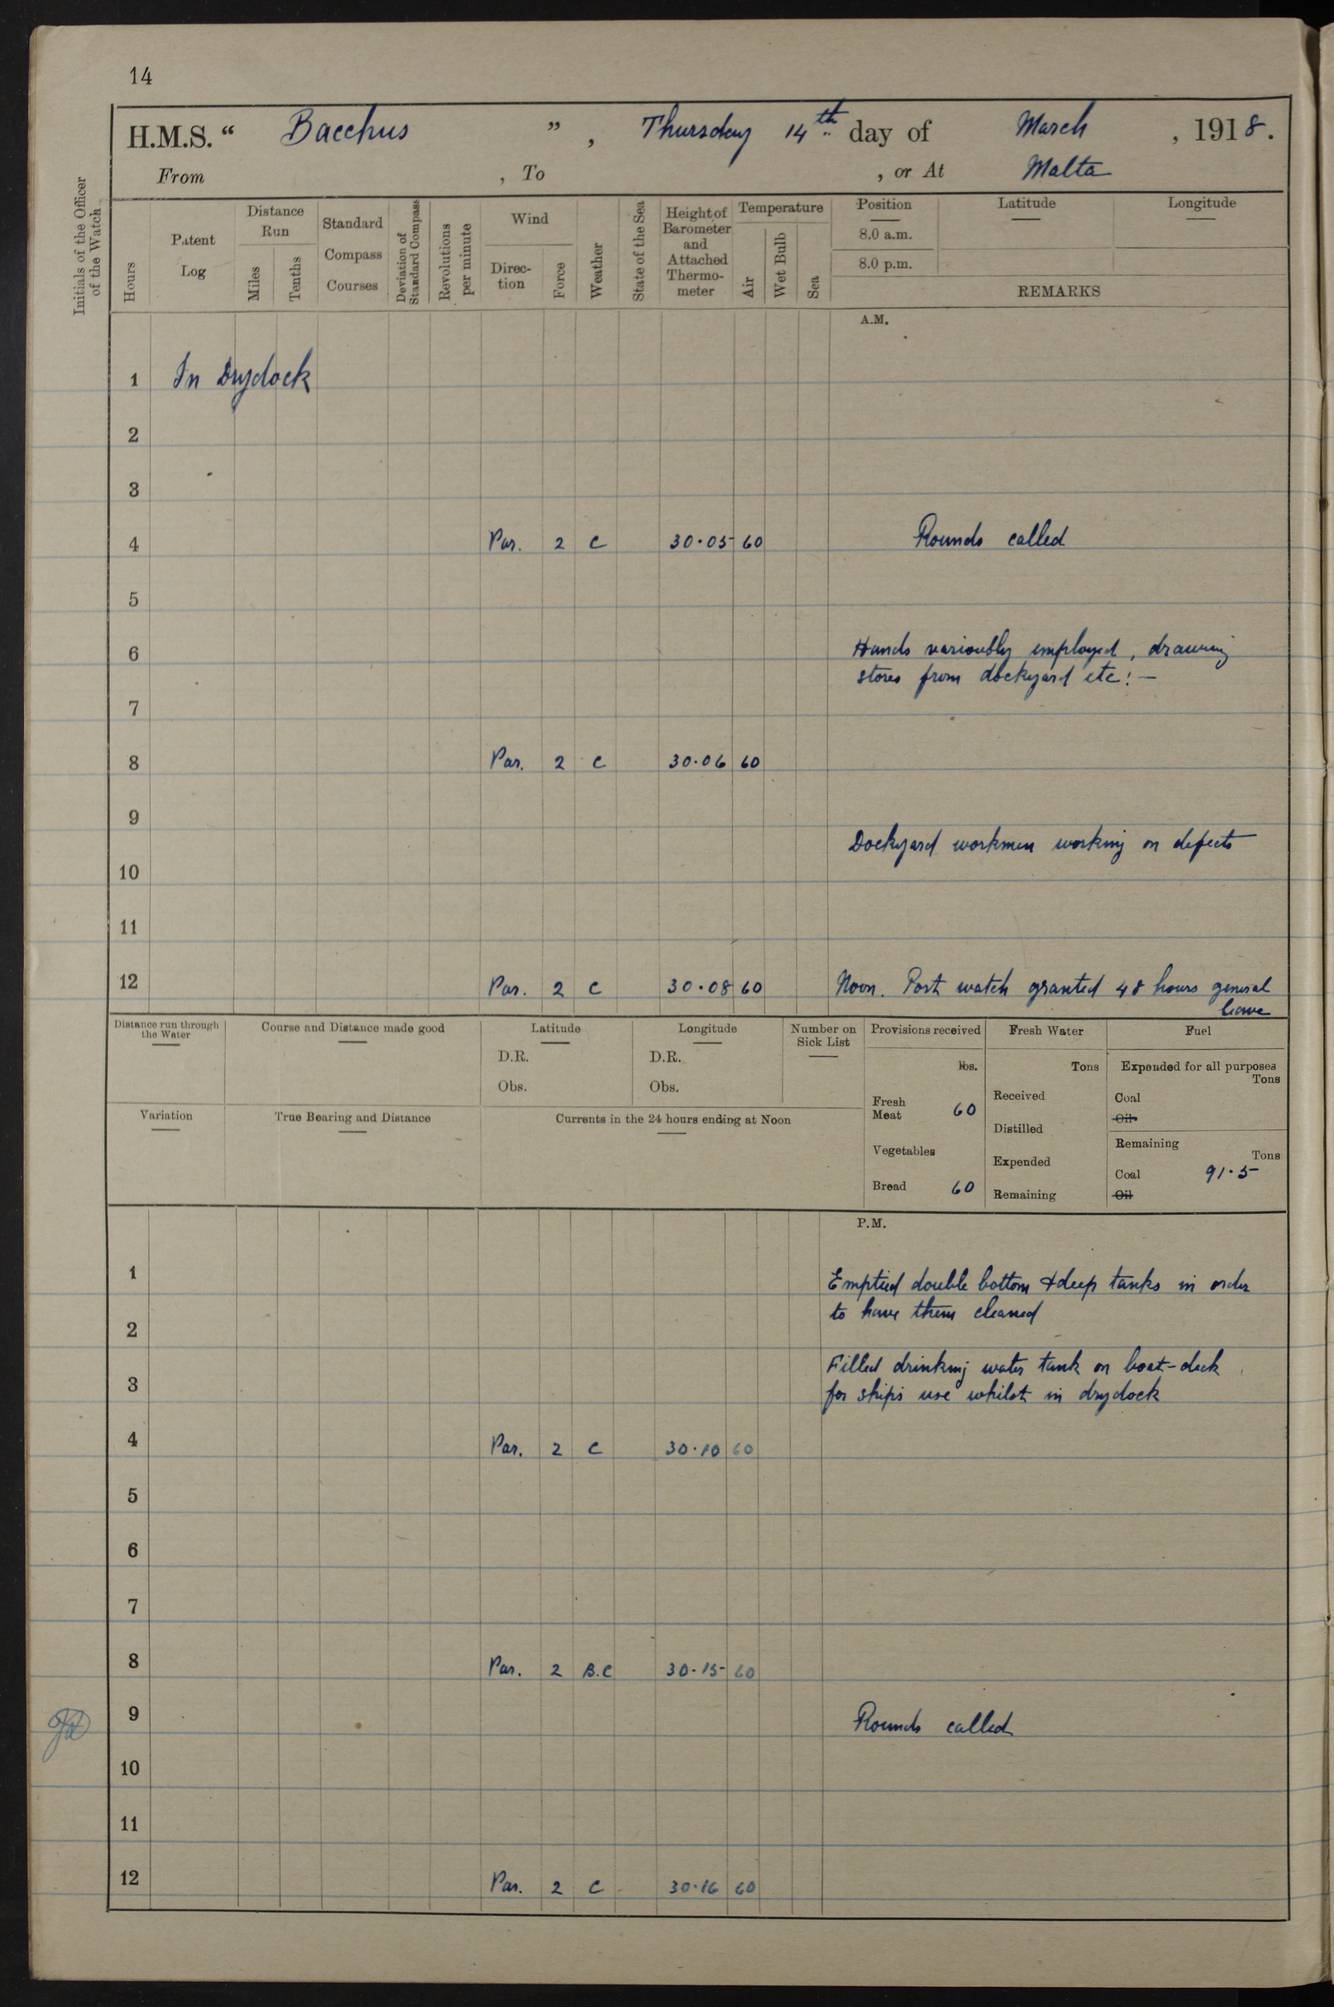 14
H.M.S. " Bacchus ", Thursday 14th day of March, 1918.
From , To , or At Malta
Initials of the Officer of the Watch
Hours
Patent Log
Distance Run
Miles
Tenths
Standard Compass Courses
Deviation of Standard Compass
Revolutions per minute
Wind
Direc-tion
Force
Weather
State of the Sea
Height of Barometer and Attached Thermo-meter
Temperature
Air
Wet Bulb
Sea
Position
8.0 a.m.
8.0 p.m.
Latitude
Longitude
REMARKS
A.M.
1 In Drydock
2
3
4 Var. 2 C 30·05 60 Rounds called
5
6 Hands variously employed, drawing
stores from dockyard etc:—
7
8 Var. 2 C 30·06 60
9
Dockyard workmen working on defects
10
11
12 Var. 2 C 30·08 60 Noon. Port watch granted 48 hours general
leave
Distance run through the Water
Course and Distance made good
Latitude
D.R.
Obs.
Longitude
D.R.
Obs.
Number on Sick List
Provisions received
lbs.
Fresh Meat 60
Vegetables
Bread 60
Fresh Water
Tons
Received
Distilled
Expended
Remaining
Fuel
Expended for all purposes
Tons
Coal
Oil
Remaining
Tons
Coal 91·5
Oil
Variation
True Bearing and Distance
Currents in the 24 hours ending at Noon
P.M.
1 Emptied double bottom & deep tanks in order
to have them cleaned
2
Filled drinking water tank on boat-deck
3 for ships use whilst in drydock
4 Var. 2 C 30·10 60
5
6
7
8 Var. 2 B.C 30·15 60
9 Rounds called
10
11
12 Var. 2 C 30·16 60